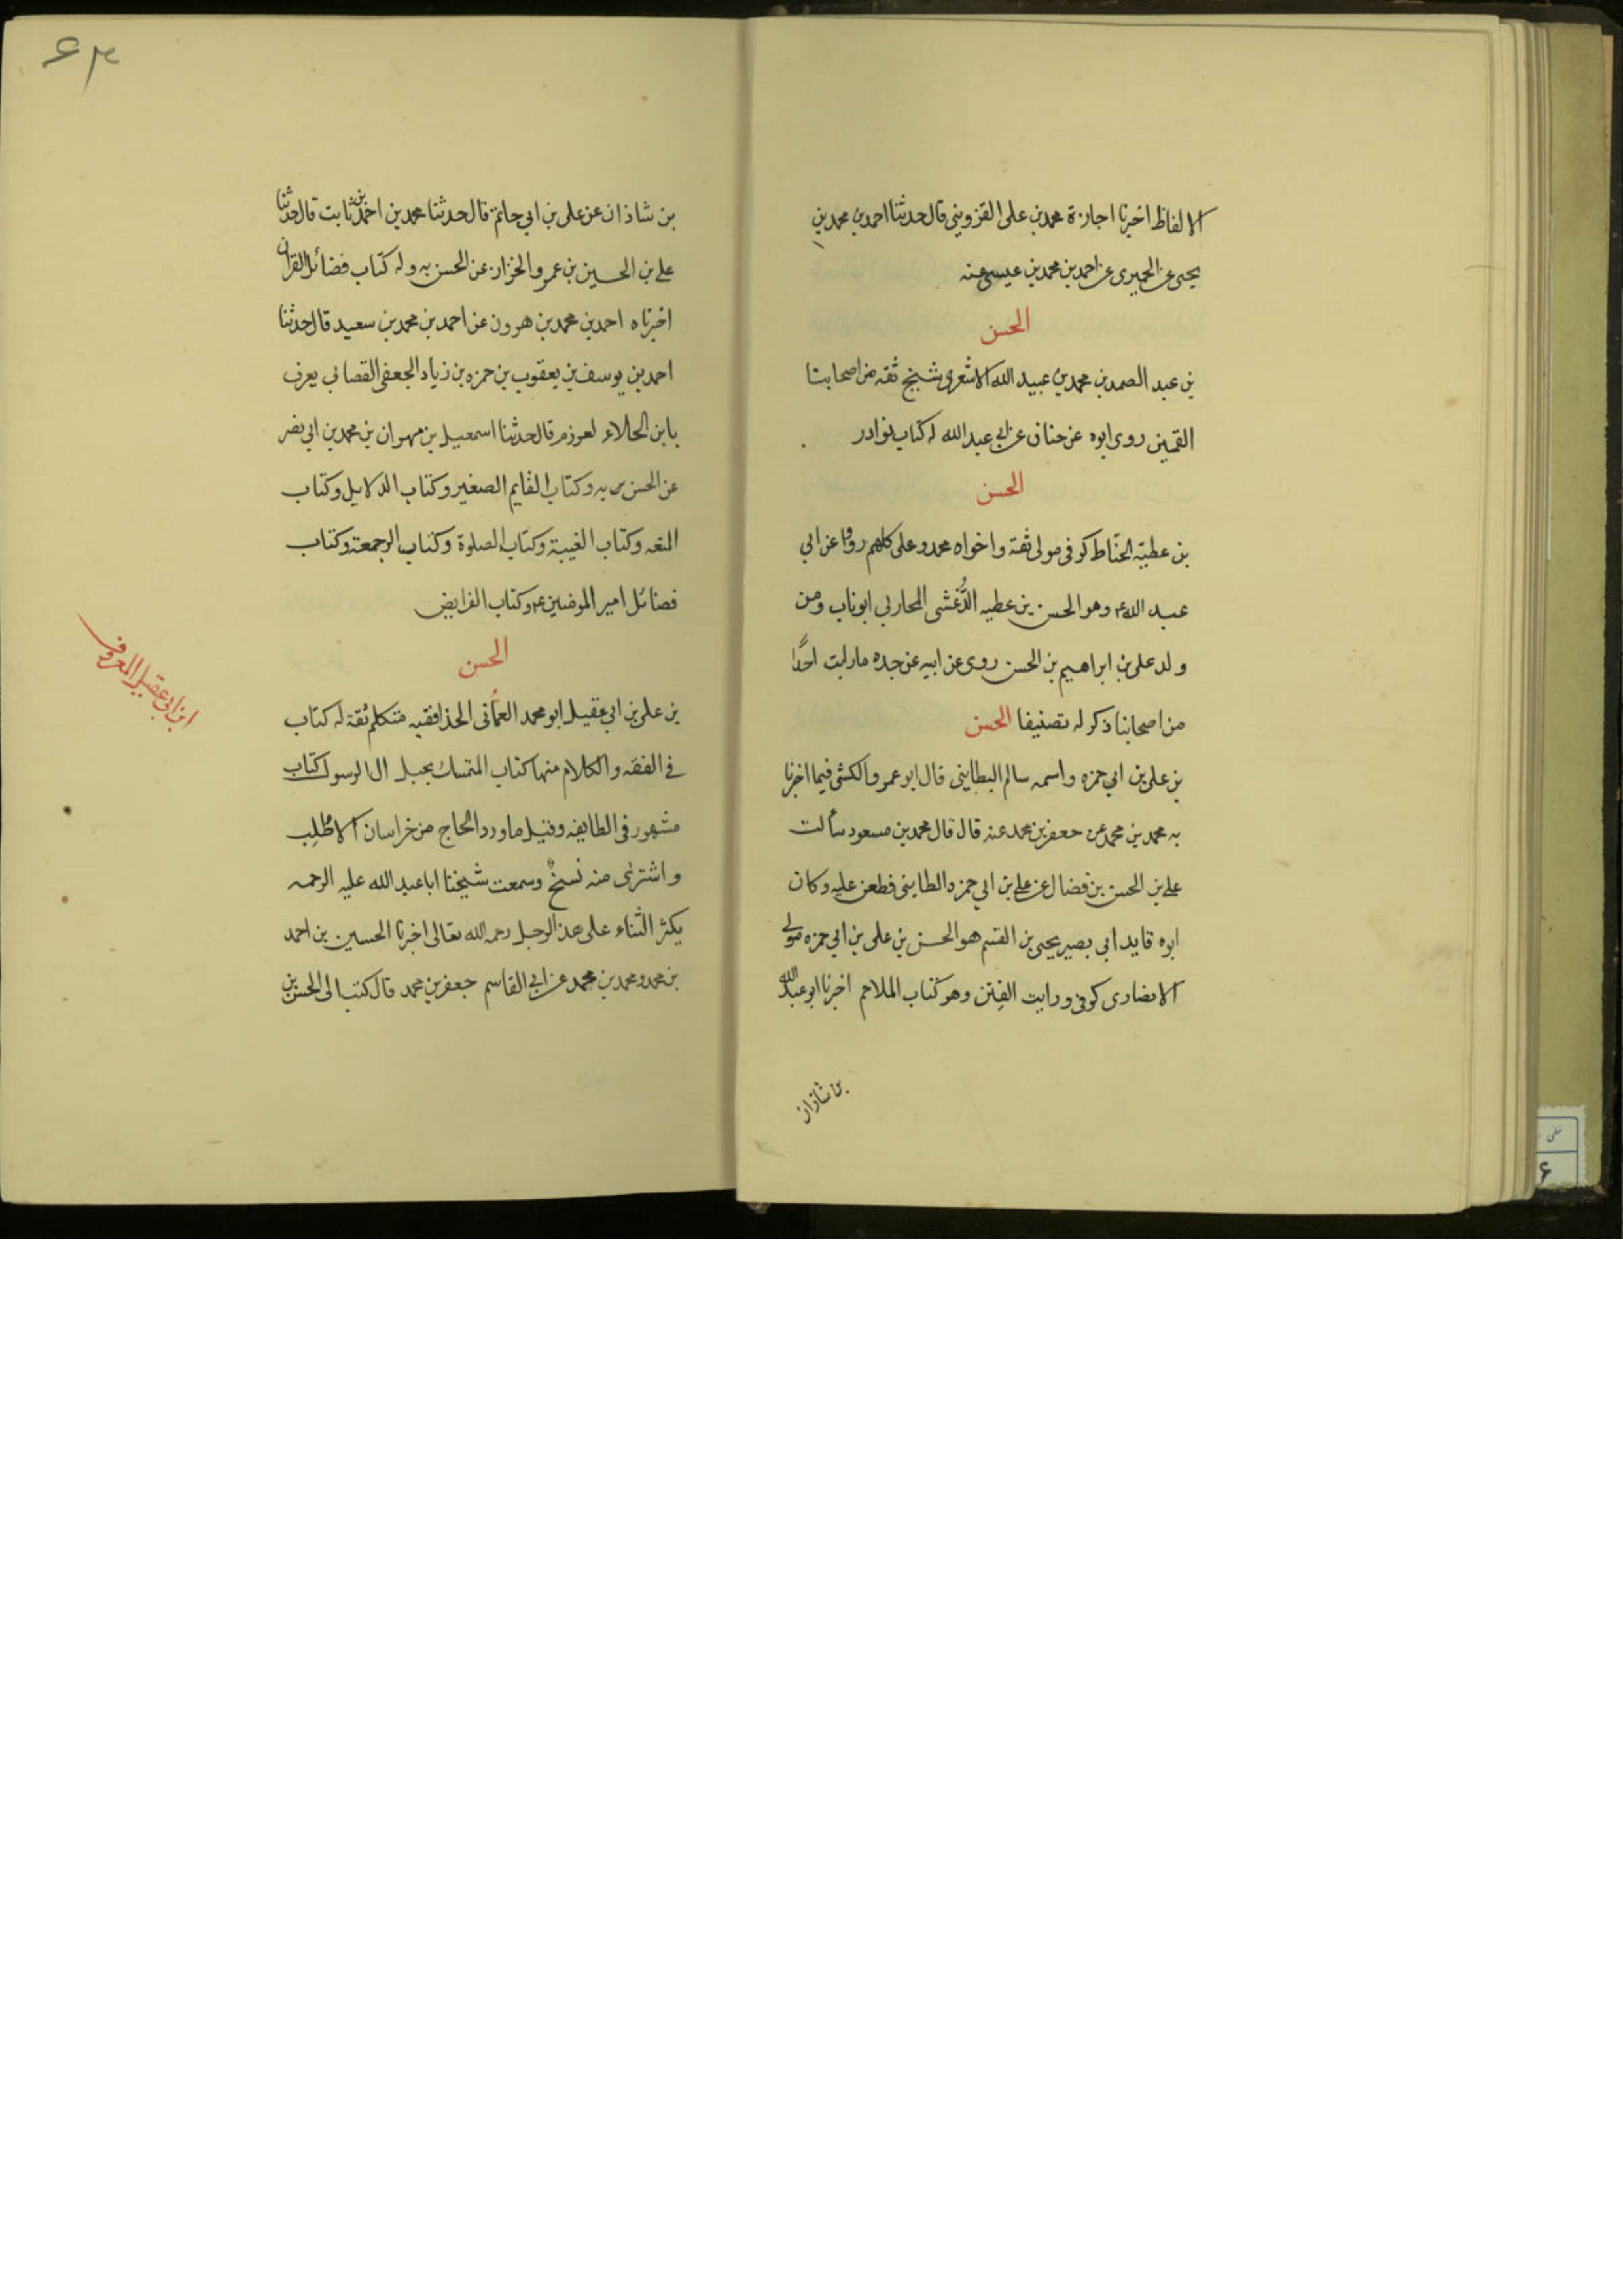 الالفاظ اخبرنا اجازة محمد بن على القزوينى قال حدثنا احمد بن محمد بن
يحيى عن الحميرى عن احمد بن محمد بن عيسى عنه
الحسن
بن عبد الصمد بن محمد بن عبيد الله الاشعرى شيخ ثقه من اصحابنا
القميين روى ابوه عن حنان عن ابى عبد الله له كتاب نوادر
الحسن
بن عطيّه الحنّاط كوفى مولى ثقة واخواه محمد وعلى كلهم رووا عن ابى
عبد الله ع وهو الحسن بن عطيه الدُّغشى المحاربى ابو ناب ومن
ولد على بن ابراهيم بن الحسن روى عن ابيه عن جده مارايت احدًا
من اصحابنا ذكر له تصنيفا الحسن
بن على بن ابى حمزه واسمه سالم البطاينى قال ابو عمرو الكشى فيما اخبرنا
به محمد بن محمد عن جعفر بن محمد عنه قال قال محمد بن مسعود سألت
على بن الحسن بن فضال عن على بن ابى حمزه الطاينى فطعن عليه وكان
ابوه قايد ابى بصير يحيى بن القسم هو الحسن بن على بن ابى حمزه مولى
الانصارى كوفى ورايت الفِتن وهو كتاب الملاحم اخبرنا ابو عبد الله
بن شاذان
۶۳
بن شاذان عن على بن ابى حاتم قال حدثنا محمد بن احمد بن ثابت قال حدثنا
على بن الحسين بن عمرو الخزاز عن الحسن به وله كتاب فضائل القران
اخبرناه احمد بن محمد بن هرون عن احمد بن محمد بن سعيد قال حدثنا
احمد بن يوسف بن يعقوب بن حمزه بن زياد الجعفى القصابى يعرف
بابن الحلاء لعوزم قال حدثنا اسمعيل بن مهران بن محمد بن ابى نصر
عن الحسن به وكتاب القايم الصغير وكتاب الدلايل وكتاب
المتعه وكتاب الغيبة وكتاب الصلوة وكتاب الرجعة وكتاب
فضائل امير المومنين ع وكتاب الفرايض
الحسن
بن على بن ابى عقيل ابو محمد العمّانى الحذا فقيه متكلم ثقة له كتاب
فى الفقه والكلام منها كتاب المتمسك بحبل ال الرسول كتاب
مشهور فى الطايفه وقيل ما ورد الحاج من خراسان الا طَلب
واشترى منه نسخٌ وسمعت شيخنا ابا عبد الله عليه الرحمه
يكثر الثناء على هذا الرجل رحمه الله تعالى اخبرنا الحسين بن احمد
بن محمد ومحمد بن محمد عن ابى القاسم جعفر بن محمد قال كتب الى الحسن بن
ابن ابى عقيل المعروف